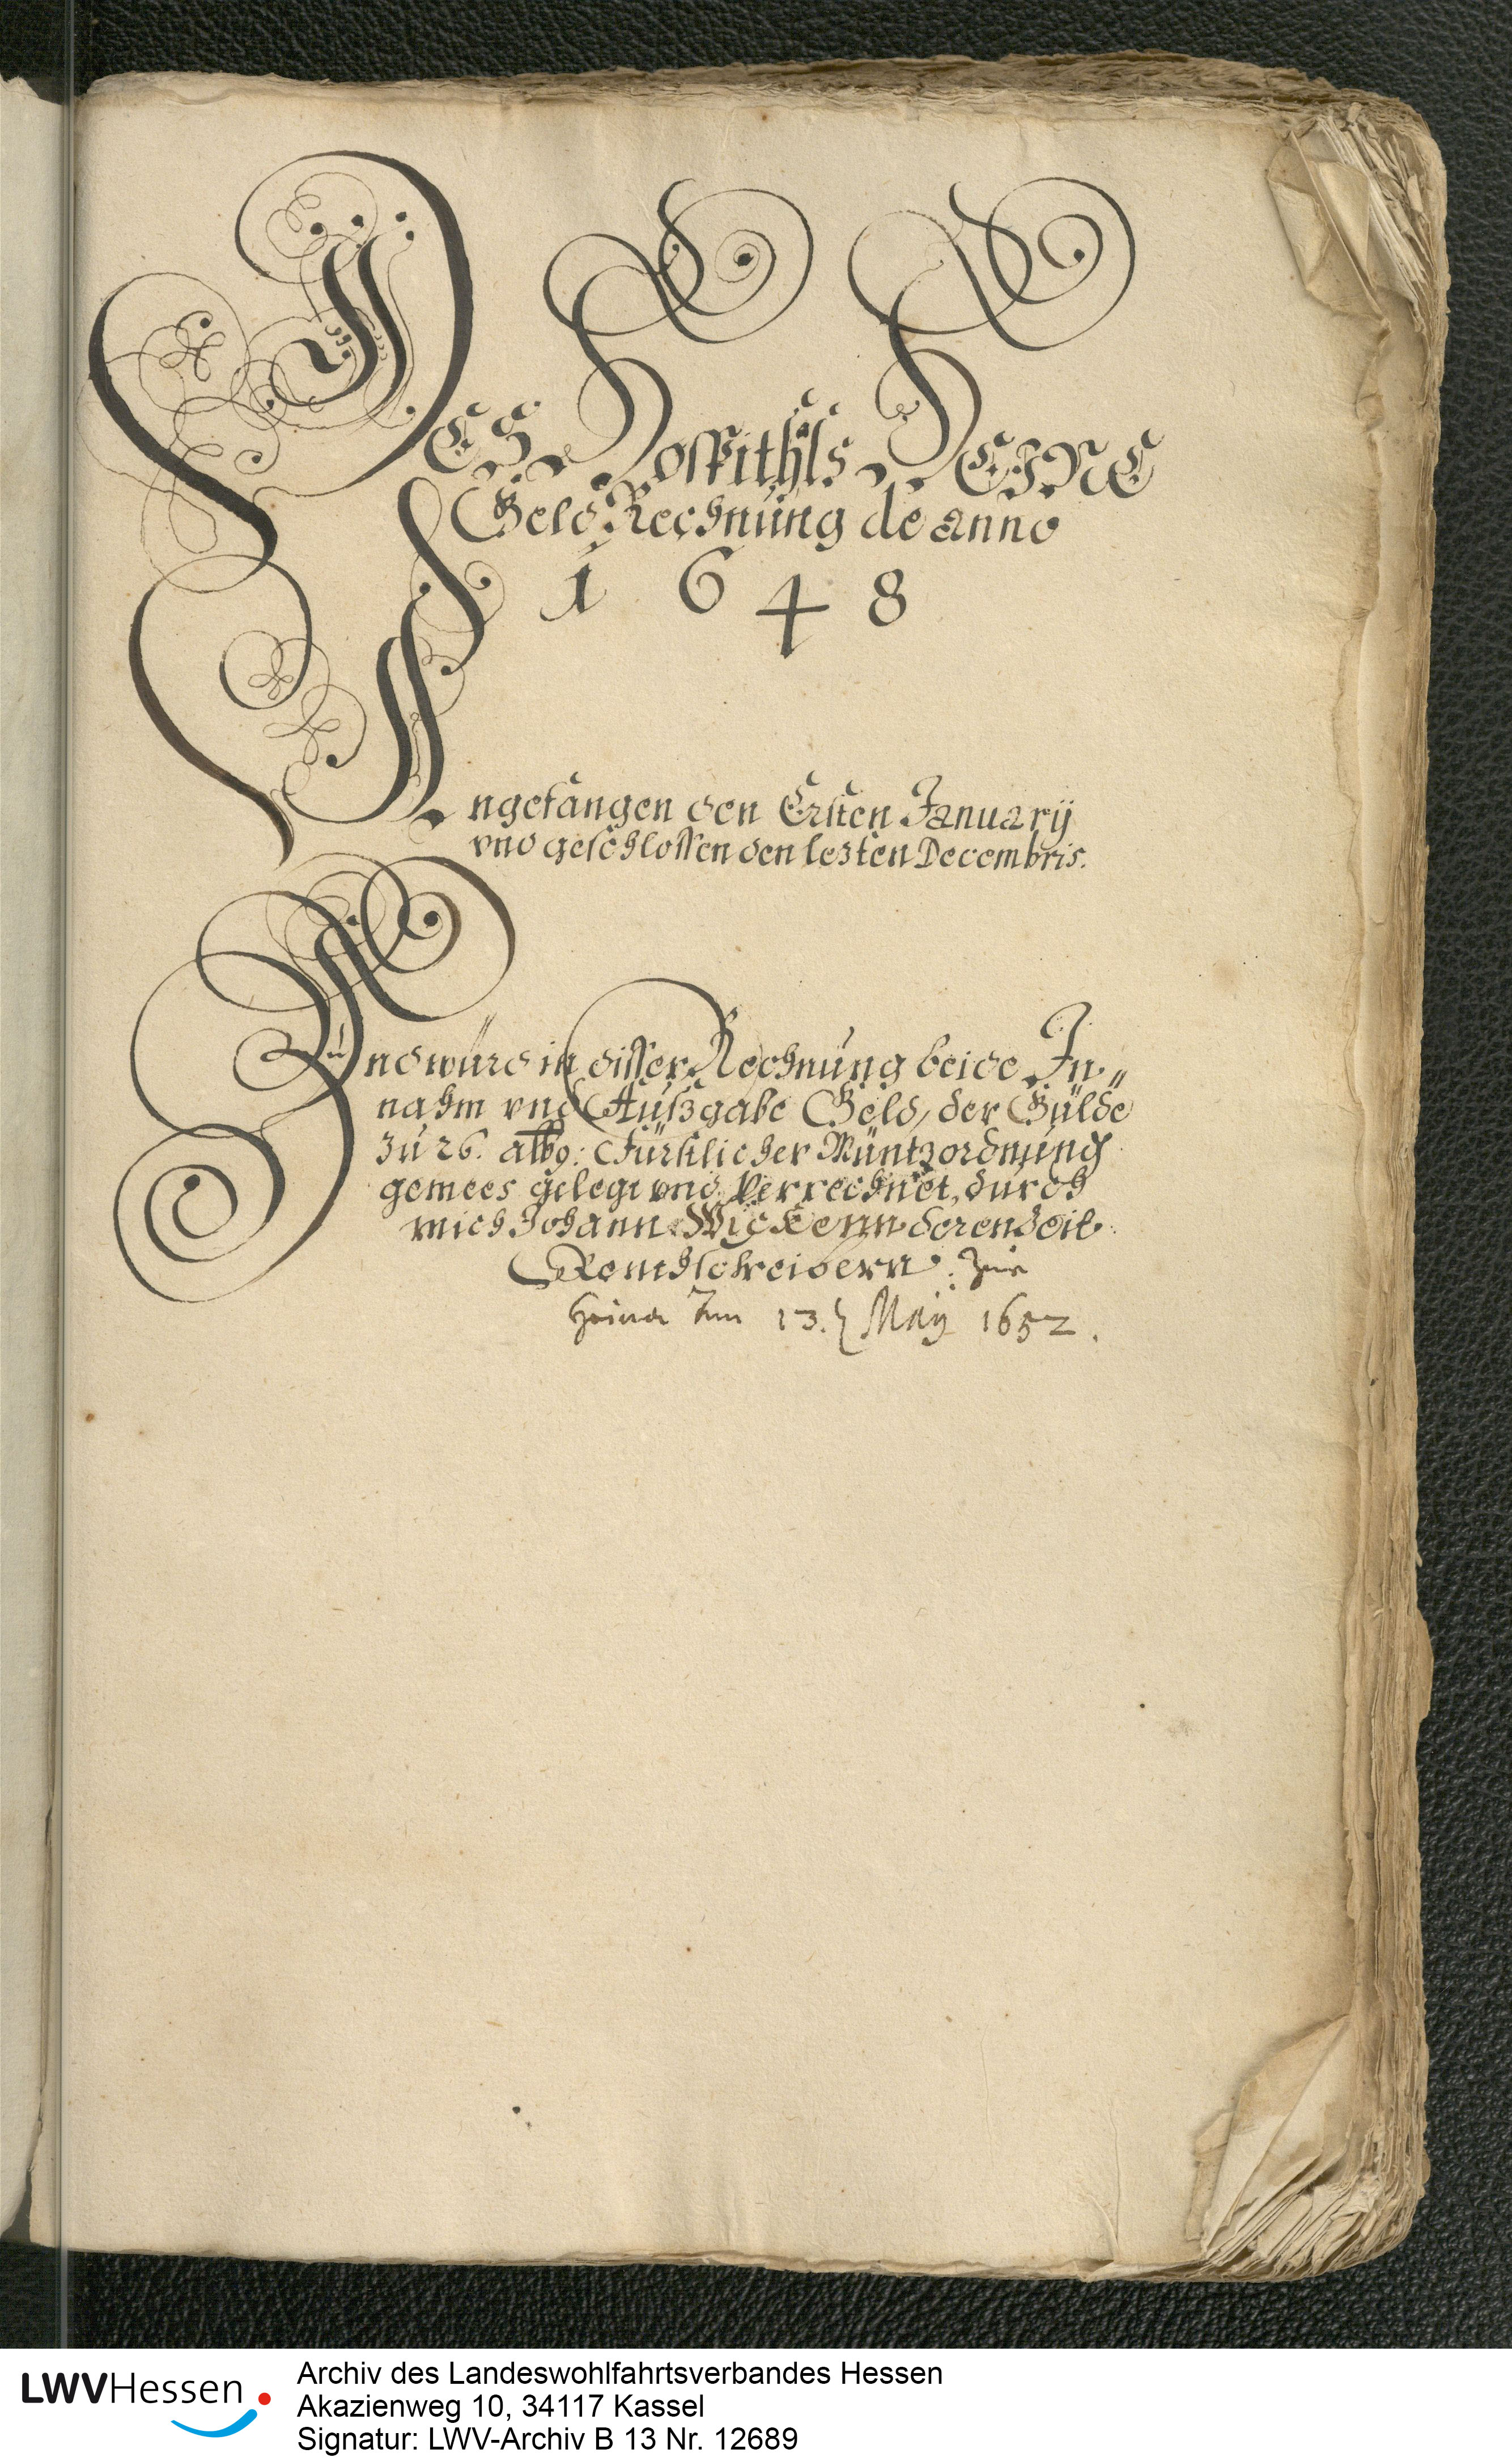 DES Hospithls HEINE
Geld Rechnung de anno
1648
Angefangen den Ersten January
vnd geschlossen den lezten Decembris.
Vnd würd in disser Rechnung beide In„
nahm vnd Außgabe Geld, der Gülde
zu 26. albg: Fürstlicher Müntzordnung
gemees gelegt vnd Verrechnet, durch
mich Johann Wickenn derenzeit
Renthschreibern. Zum
Heina den 13. May 1652.
LWVHessen
Archiv des Landeswohlfahrtsverbandes Hessen
Akazienweg 10, 34117 Kassel
Signatur: LWV-Archiv B 13 Nr. 12689